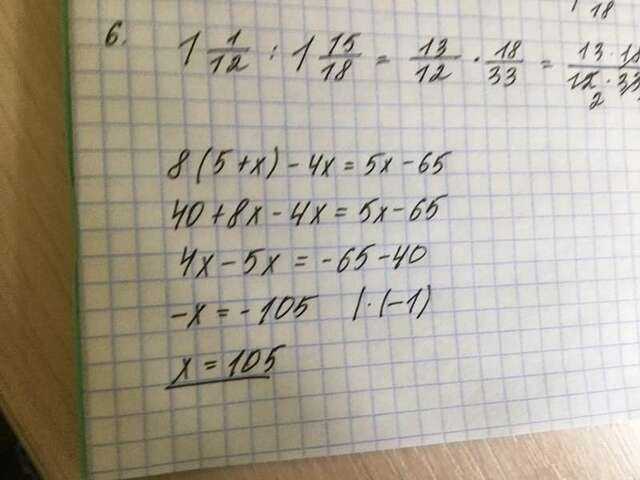 18
6. 1 1/12 : 1 15/18 = 13/12 · 18/33 = 13 · 18/12 · 33
2
8(5+x)-4x=5x-65
40+8x-4x=5x-65
4x-5x=-65-40
-x=-105 |·(-1)
x=105